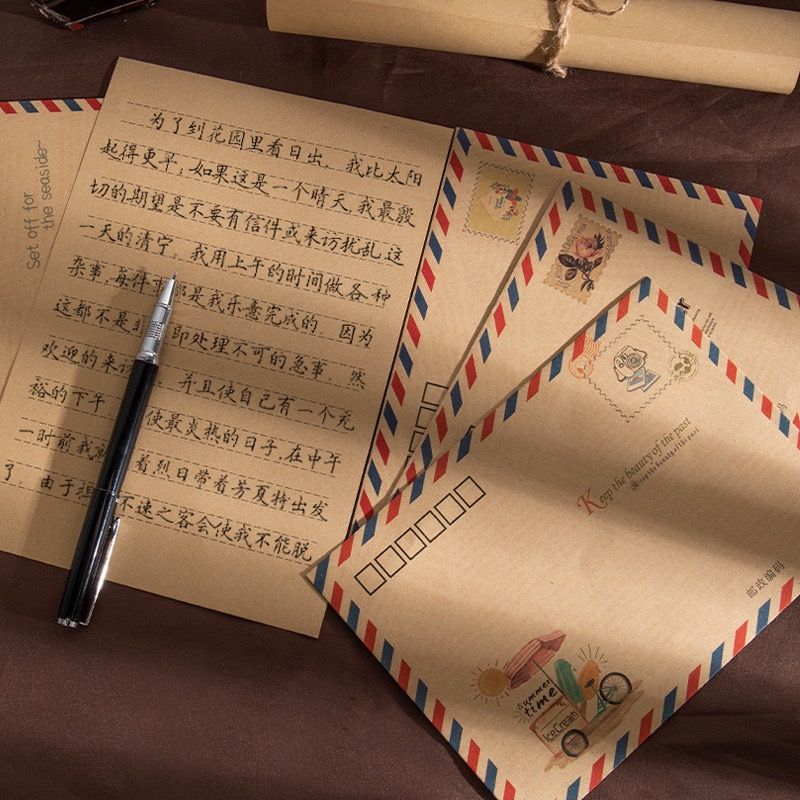 为了到花园里看日出，我比太阳
起得更早；如果这是一个晴天，我最殷
切的期望是不要有信件或来访扰乱这
一天的清宁。我用上午的时间做各种
杂事，每件
都是我乐意完成的，因为
这都不是非
即处理不可的急事，然
欢迎的来访
，并且使自己有一个充
裕的下午，
使最炎热的日子，在中午
一时前我
着烈日带着芳夏特出发
了，由于担
不速之客会使我不能脱
Set off for
the seaside~
Keep the beauty of the past
Keep the beauty of the past
邮政编码
summer
time
IceCream